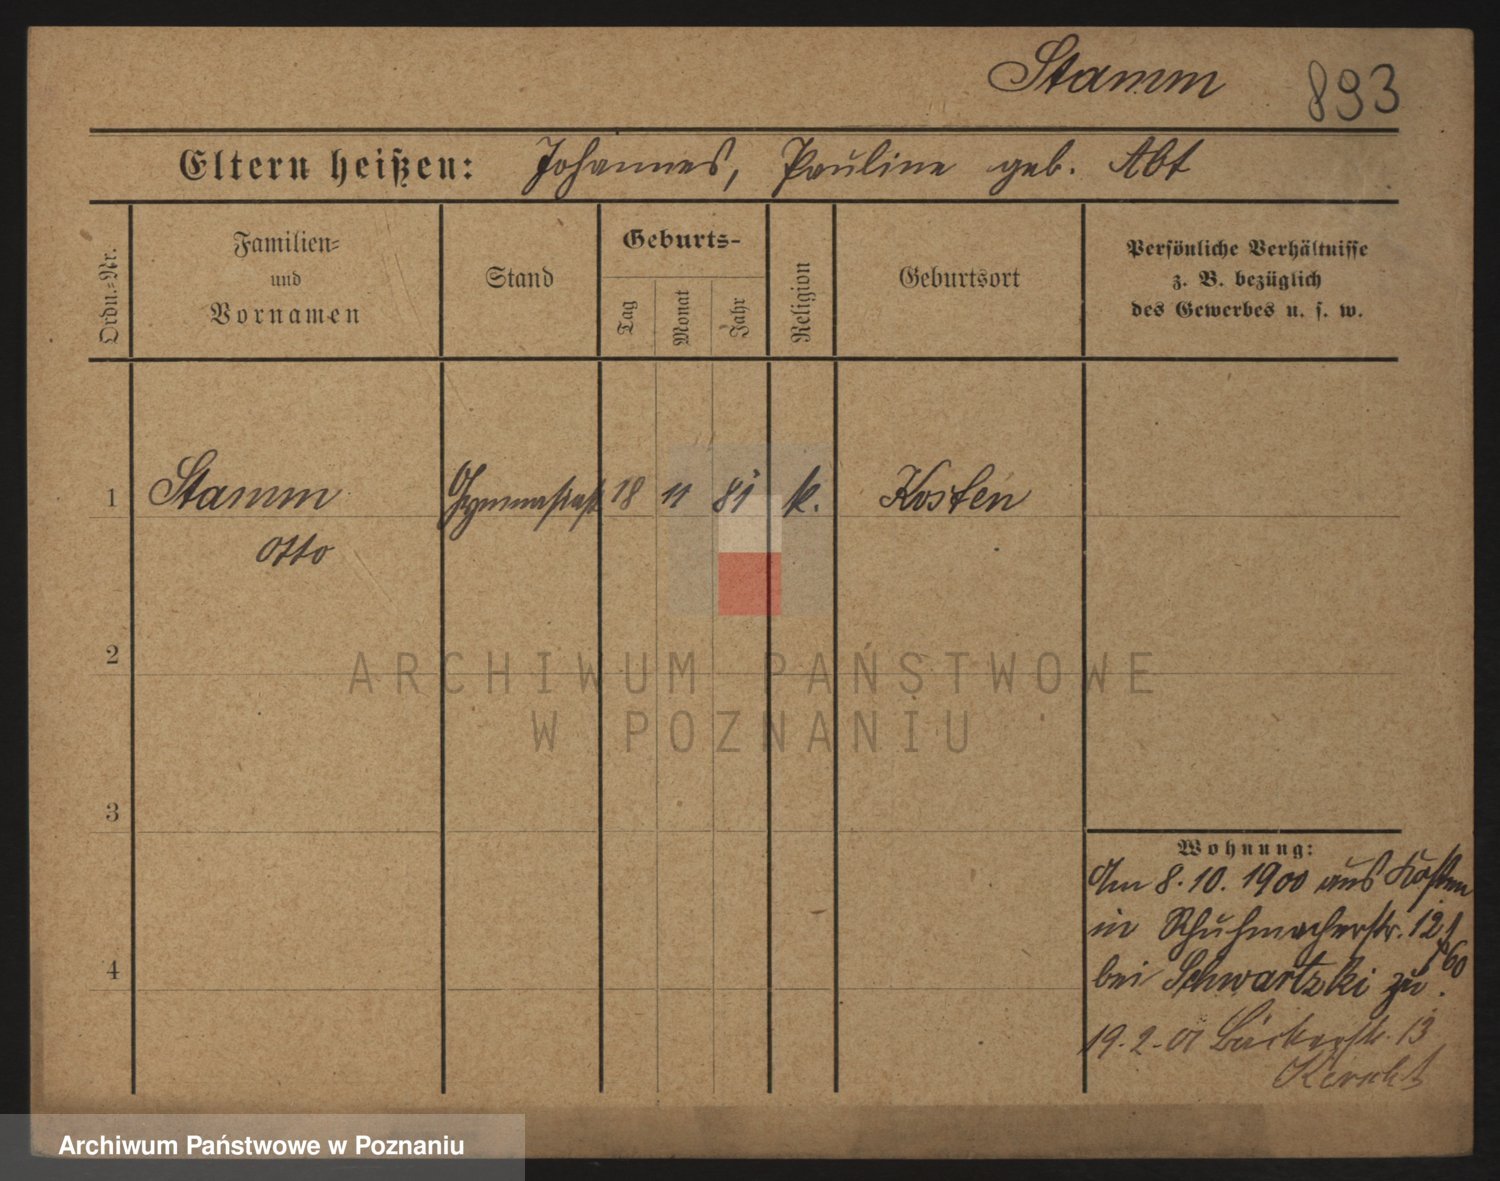 Stamm 893
Eltern heißen: Johannes, Pauline geb. Abt
Ordn.-Nr.
Familien-
und
Vornamen
Stand
Geburts-
Tag
Monat
Jahr
Religion
Geburtsort
Persönliche Verhältnisse
z. B. bezüglich
des Gewerbes u. s. w.
1 Stamm Gymnasiast 18 11 81 k. Kosten
Otto
2
ARCHIWUM PAŃSTWOWE
W POZNANIU
3
Wohnung:
Am 8.10.1900 aus Kosten
in Schuhmacherstr. 12
bei Schwartzki zu.
4
19.2.01 Bäckerstr. 13
Archiwum Państwowe w Poznaniu